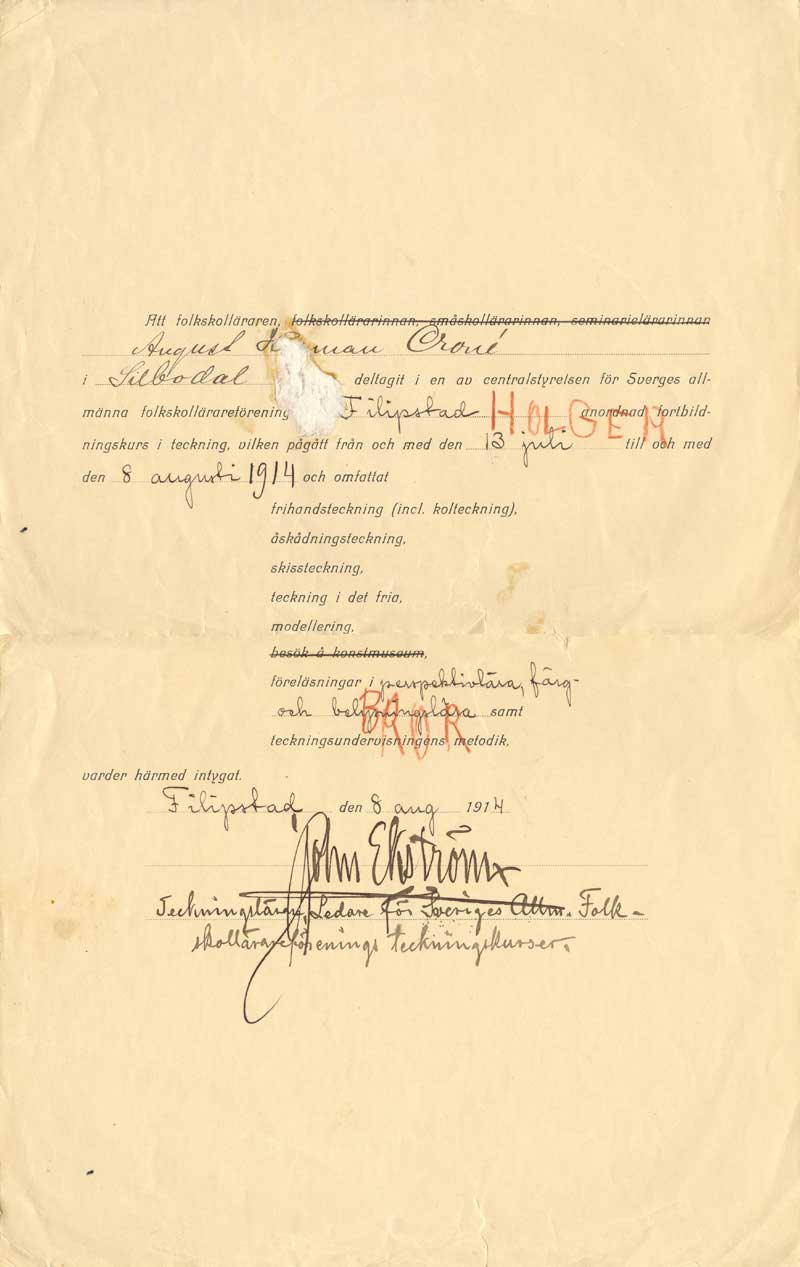 Att folkskolläraren, folkskollärarinnan, småskollärarinnan, seminarielärarinnan
August man Croné
i Silbodal deltagit i en av centralstyrelsen för Sveriges all-
männa folkskollärareförening Filipstad anordnad fortbild-
HOLGER
ningskurs i teckning, vilken pågått från och med den 13 juli till och med
den 8 augusti 1914 och omfattat
frihandsteckning (incl. kolteckning),
åskådningsteckning,
skissteckning,
teckning i det fria,
modellering,
besök å konstmuseum,
föreläsningar i perspektivlära, färg-
och belysningslära samt
teckningsundervisningens metodik,
varder härmed intygat.
Filipstad den 8 aug 1914
John Ekström
Ledare för Sveriges Allm. Folk-
skollärareförenings teckningskurser.